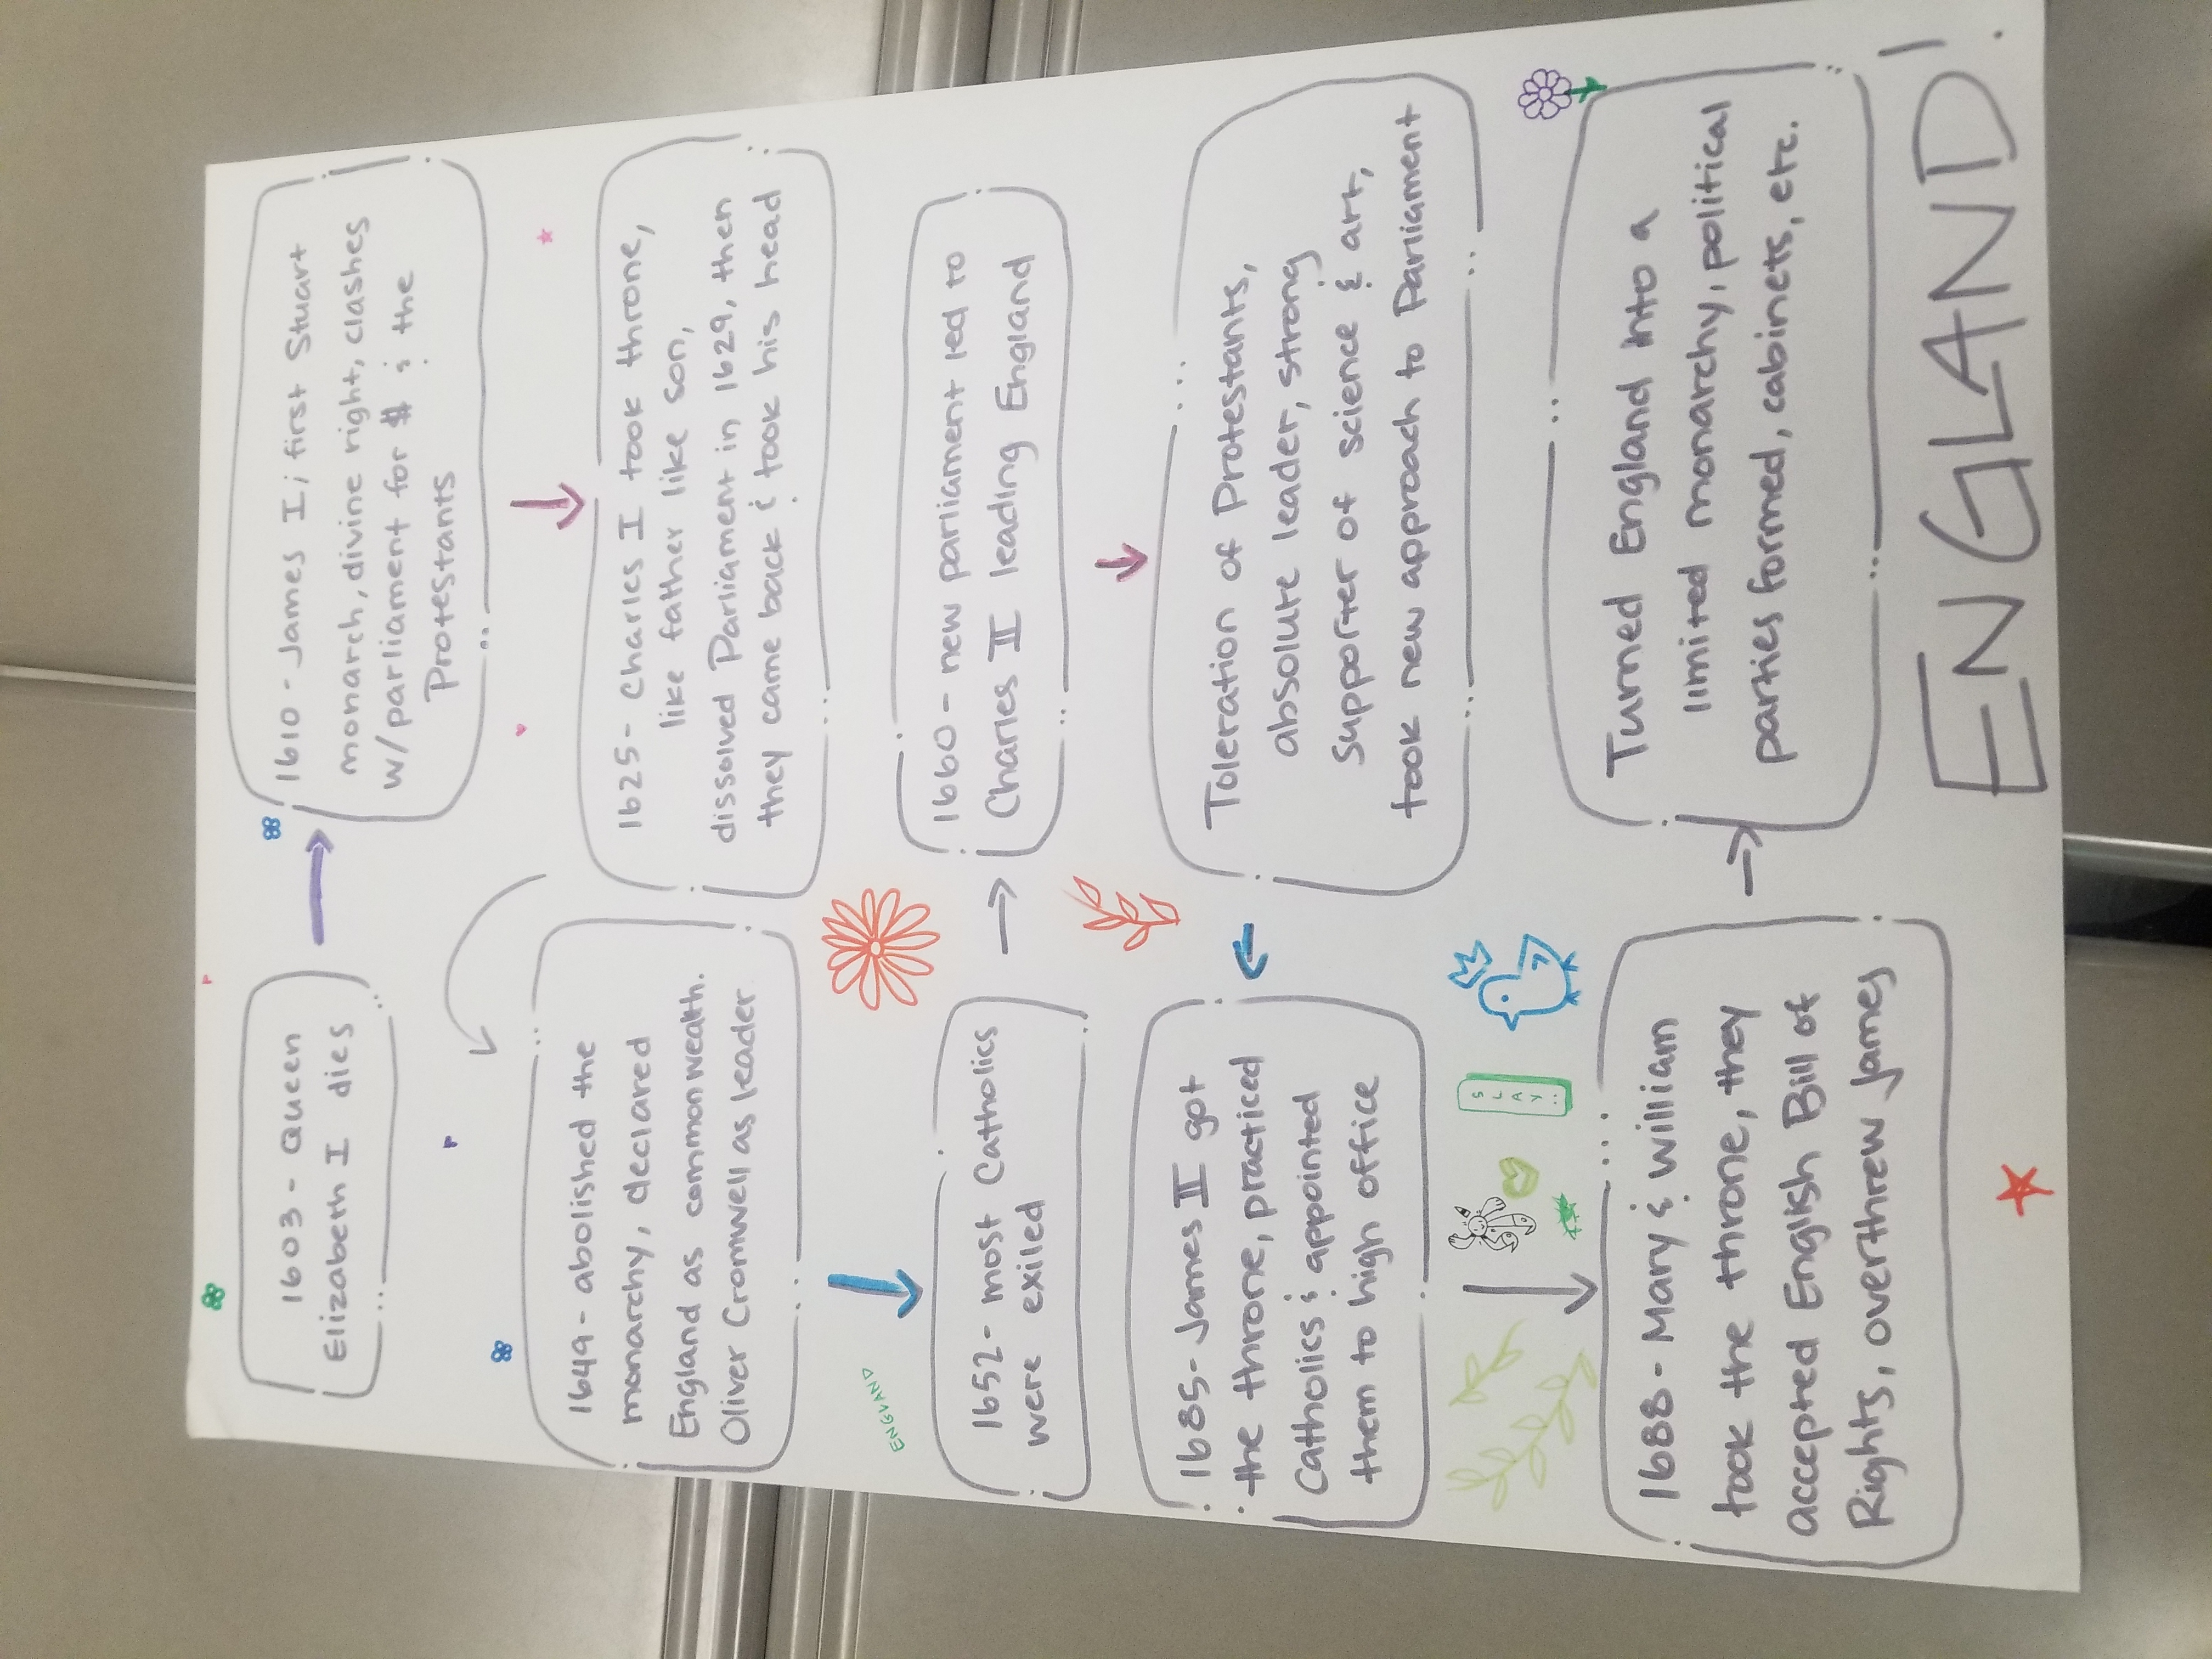 1603 - Queen
Elizabeth I dies
1610 - James I; first Stuart
monarch, divine right, clashes
w/parliament for $ & the
Protestants
1625- Charles I took throne,
like father like son,
dissolved Parliament in 1629, then
they came back & took his head
1649- abolished the
monarchy, declared
England as commonwealth.
Oliver Cromwell as leader
ENGLAND
1652- most Catholics
were exiled
1660 - new parliament led to
Charles II leading England
Toleration of Protestants,
absolute leader, strong
supporter of science & art,
took new approach to Parliament
1685- James II got
the throne, practiced
Catholics & appointed
them to high office
SLAY
1688- Mary & William
took the throne, they
accepted English Bill of
Rights, overthrew James
Turned England into a
limited monarchy, political
parties formed, cabinets, etc.
ENGLAND!